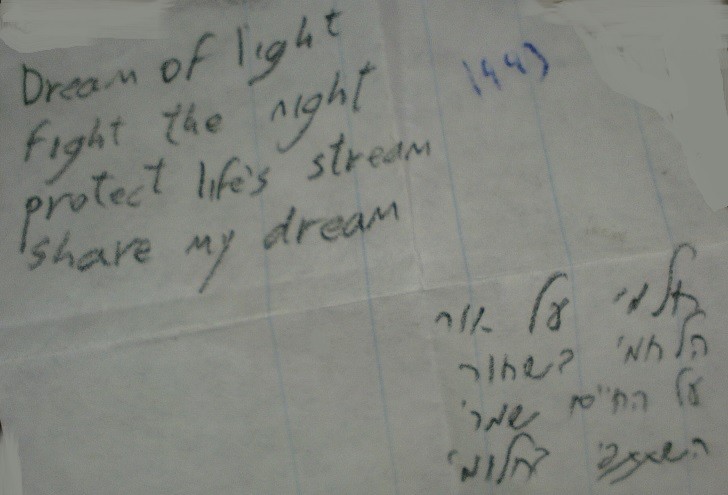 Dream of light
fight the night
protect life's stream
share my dream
חלמי על אור
הלחמי בשחור
על החיים שמרי
השתתפי בחלומי